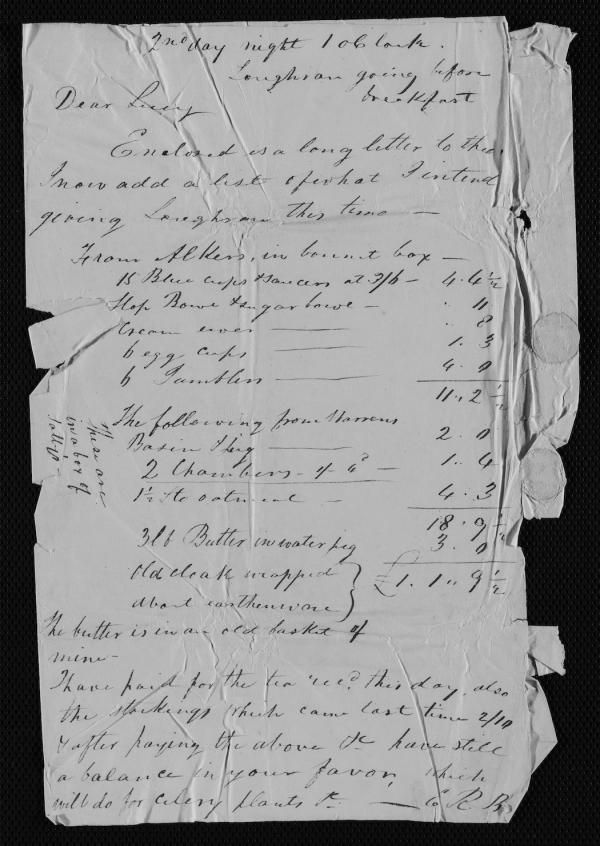 2nd day night 1 oClock.
Loughran going before
breakfast
Dear Lucy
Enclosed is a long letter to thee
I now add a list of what I intend
giving Loughran this time —
From Alkers, in bonnet box —
15 Blue cups & saucers at 3/6 — 4.4½
Slop Bowl & sugar bowl — " 11
Cream ewer — " 8
6 egg cups — 1.3
6 Tumblers — 4.0
11.2½
The following from Warrens
Basin & jug — 2.0
2 Chambers — 1.4
1½ St oatmeal — 4.3
18.9½
3lb Butter in water peg 3.0
£1.1.9½
old cloak wrapped
about earthenware
These are
in a box of
The butter is in an old basket of
mine —
I have paid for the tea rec.d this day, also
the stockings which came last time 2/10
& after paying the above &c have still
a balance in your favor, which
will do for celery plants &c — R B